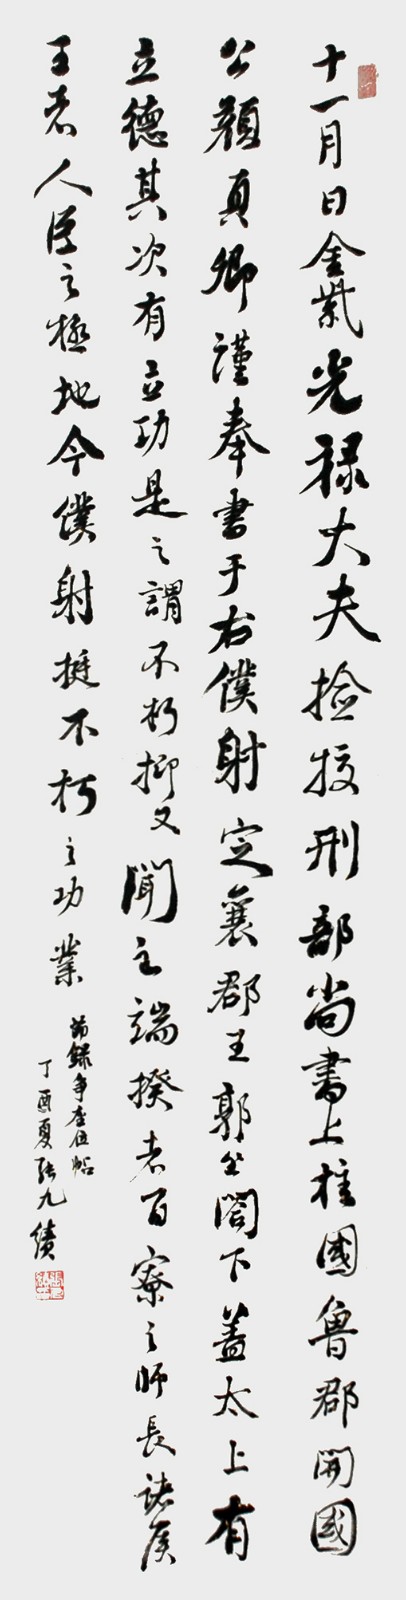 十一月日金紫光禄大夫捡挍刑部尚書上柱國魯郡開國
公顏真卿謹奉書于右僕射定襄郡王郭公閤下蓋太上有
立德其次有立功是之謂不朽抑又聞之端揆者百寮之師長諸侯
王者人臣之極地今僕射挺不朽之功業
節録争座位帖
丁酉夏張九績